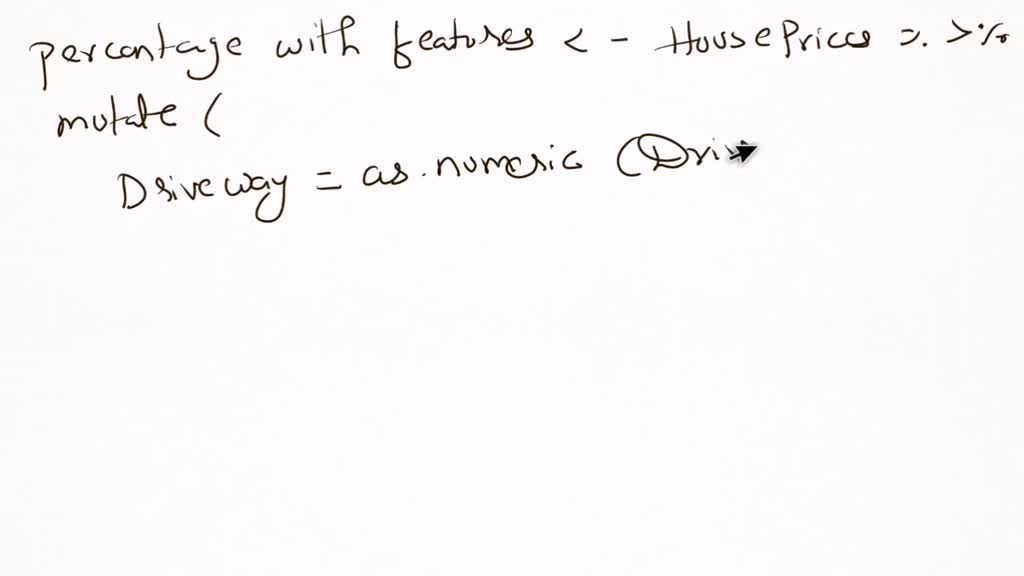 percentage with features < - HousePrices %>%
mutate (
Driveway = as.numeric (Driv